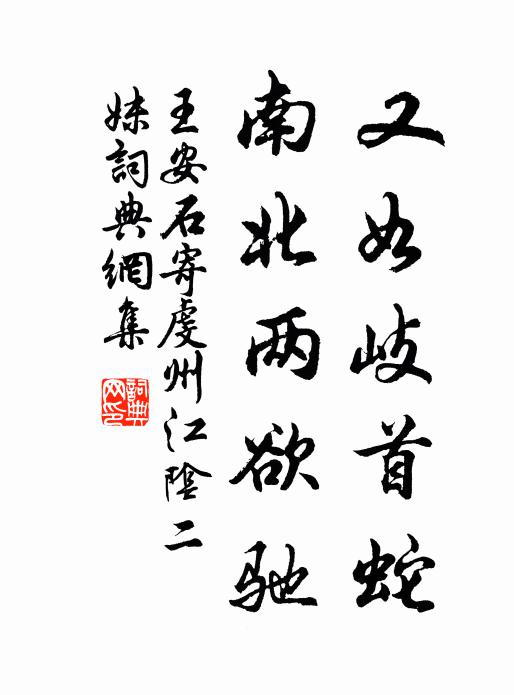 又如歧首蛇
南北两欲驰
王安石寄虔州江陰二
妹詞典網集
詞典
网印